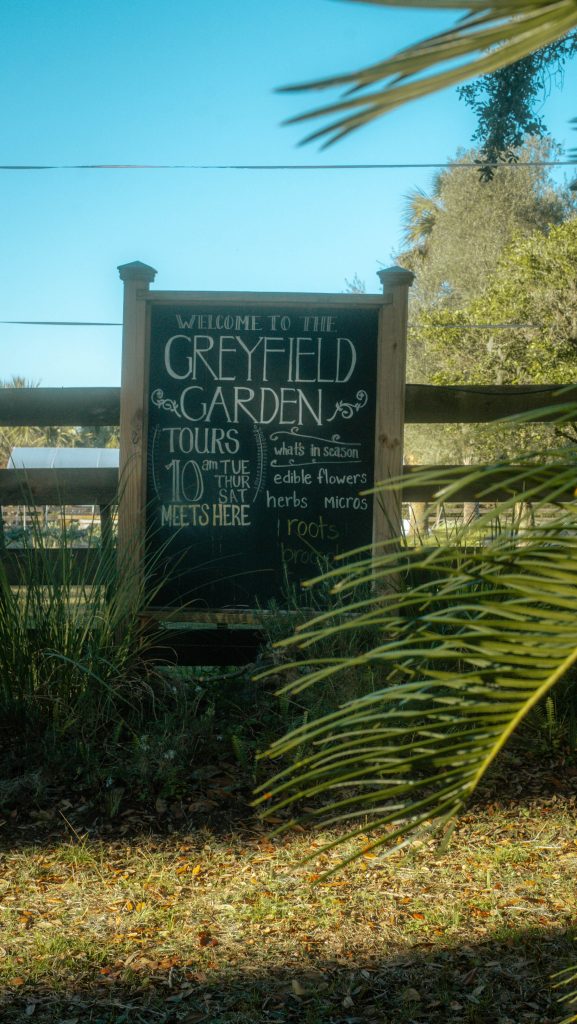 WELCOME TO THE
GREYFIELD
GARDEN
TOURS
10 am TUE
THUR
SAT
MEETS HERE
what's in season
edible flowers
herbs micros
roots